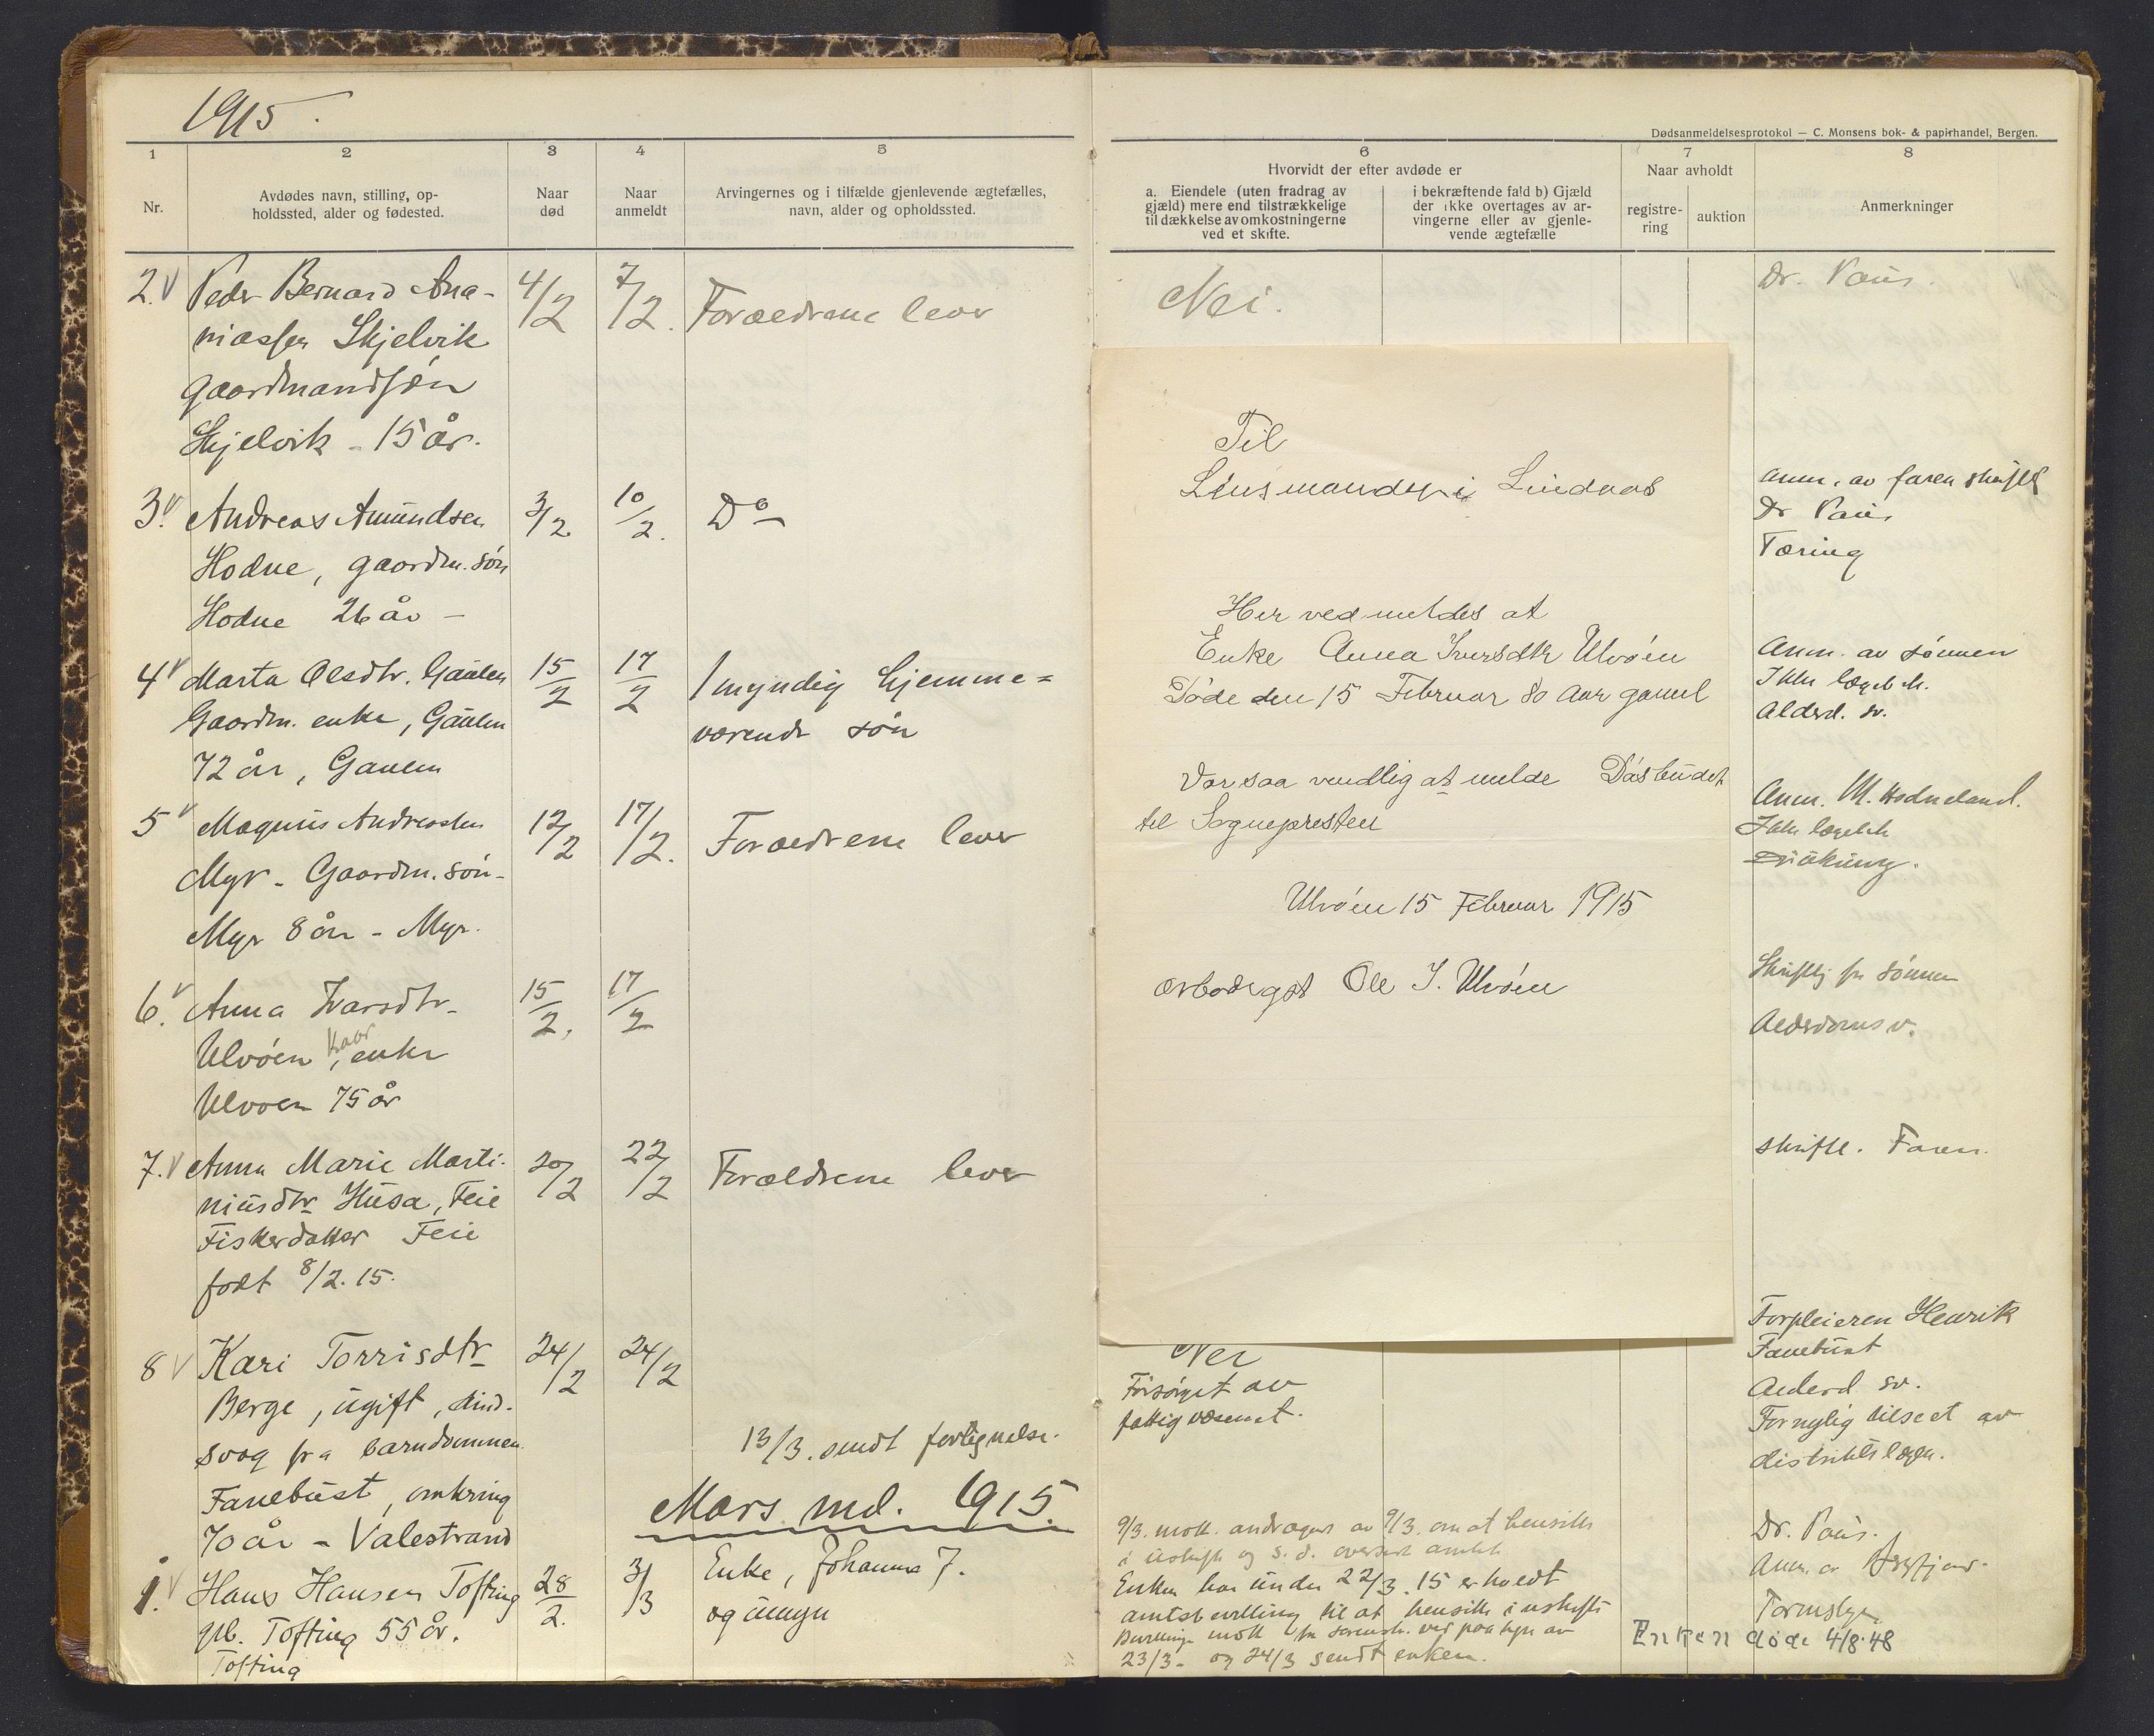 1915.
1
2
3
4
5
Nr.
Avdødes navn, stilling, op-
holdssted, alder og fødested.
Naar
død
Naar
anmeldt
Arvingernes og i tilfælde gjenlevende ægtefælles,
navn, alder og opholdssted.
2. Peder Bernard Ana- 4/2 7/2. Forældrene lever
niassen Skjelvik
gaardmandsøn
Skjelvik - 15 år.
3. Andreas Amundsen 3/2 10/2. Do
Hodne, gaardm. søn
Hodne 26 år -
4 Marta Olsdtr. Gaulen 15/2 17/2 1 myndig hjemme=
Gaardm. enke, Gaulen værende søn
72 år, Gaulen
5 Magnus Andreassen 12/2 17/2. Forældrene lever
Myr - Gaardm. søn -
Myr 8 år - Myr.
6. Anna Ivarsdtr. 15/2. 17/2
Kaar
Ulvøen, enke
Ulvøen 75 år
7. Anna Marie Marti- 20/2 22/2 Forældrene lever
niusdtr Husa, Feie
Fiskerdatter Feie
født 8/2.15.
8 Kari Torrisdtr 24/2 24/2
Berge, ugift, sind-
svag fra barndommen
13/3. sendt fortegnelse.
Fanebust, omkring
Mars md. 1915.
70 år - Valestrand
1. Hans Hansen Tofting 28/2. 3/3 Enke, Johanna J.
gb. Tofting 55 år. og umyn
Tofting
Dødsanmeldelsesprotokol — C. Monsens bok- & papirhandel, Bergen.
6
7
8
Hvorvidt der efter avdøde er
Naar avholdt
a. Eiendele (uten fradrag av
gjæld) mere end tilstrækkelige
til dækkelse av omkostningerne
ved et skifte.
i bekræftende fald b) Gjæld
der ikke overtages av ar-
vingerne eller av gjenle-
vende ægtefælle
registre-
ring
auktion
Anmerkninger
Nei.
Dr. Paus.
Til
Lensmanden i Lindaas
Her ved meldes at
Enke Anna Iversdtr Ulvøen
Døde den 15 Februar 80 Aar gamel
Vær saa vendlig at melde Døsbudet
til Sognepresten
Ulvøen 15 Februar 1915
ærbødigst Ole I. Ulvøen
Anm. av faren skriftl
Dr Paus
Tæring
Anm. av sønnen
Ikke lægebh.
Alderd. sv.
Anm. M. Hodneland.
Ikke lægebh
Skriftlig fra sønnen
Alderdoms v.
skriftl. Faren.
Forpleieren Henrik
Fanebust
Alderd. sv.
Fornylig tilseet av
distriktslægen.
Nei
Forsørget av
fattigvæsenet.
9/3. mott. andragende av 9/3. om at hensitte
i uskifte og s. d. oversendt amtet
Enken har under 22/3.15 erholdt
amtsbevilling til at hensitte i uskifte
Bevillingen mott fra sorensk. ved paategn av
23/3 - og 24/3 sendt enken.
Dr. Paus.
Anm. av
Enken døde 4/8.48